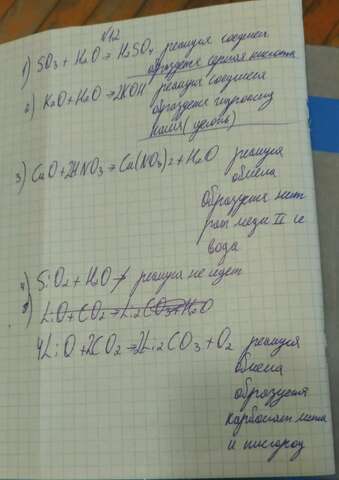 №12
1) SO₃ + H₂O → H₂SO₄ реакция соединен
образуется серная кислота
2) K₂O + H₂O → 2KOH реакция соединения
образуется гидроксид
калия (щелочь)
3) CuO + 2HNO₃ → Cu(NO₃)₂ + H₂O реакция
обмена
образуется нит
рат меди II и
вода
4) SiO₂ + H₂O ↛ реакция не идет
5) LiO + CO₂ → Li₂CO₃ + H₂O
4LiO + 2CO₂ → 2Li₂CO₃ + O₂ реакция
обмена
образуется
карбонат лития
и кислород